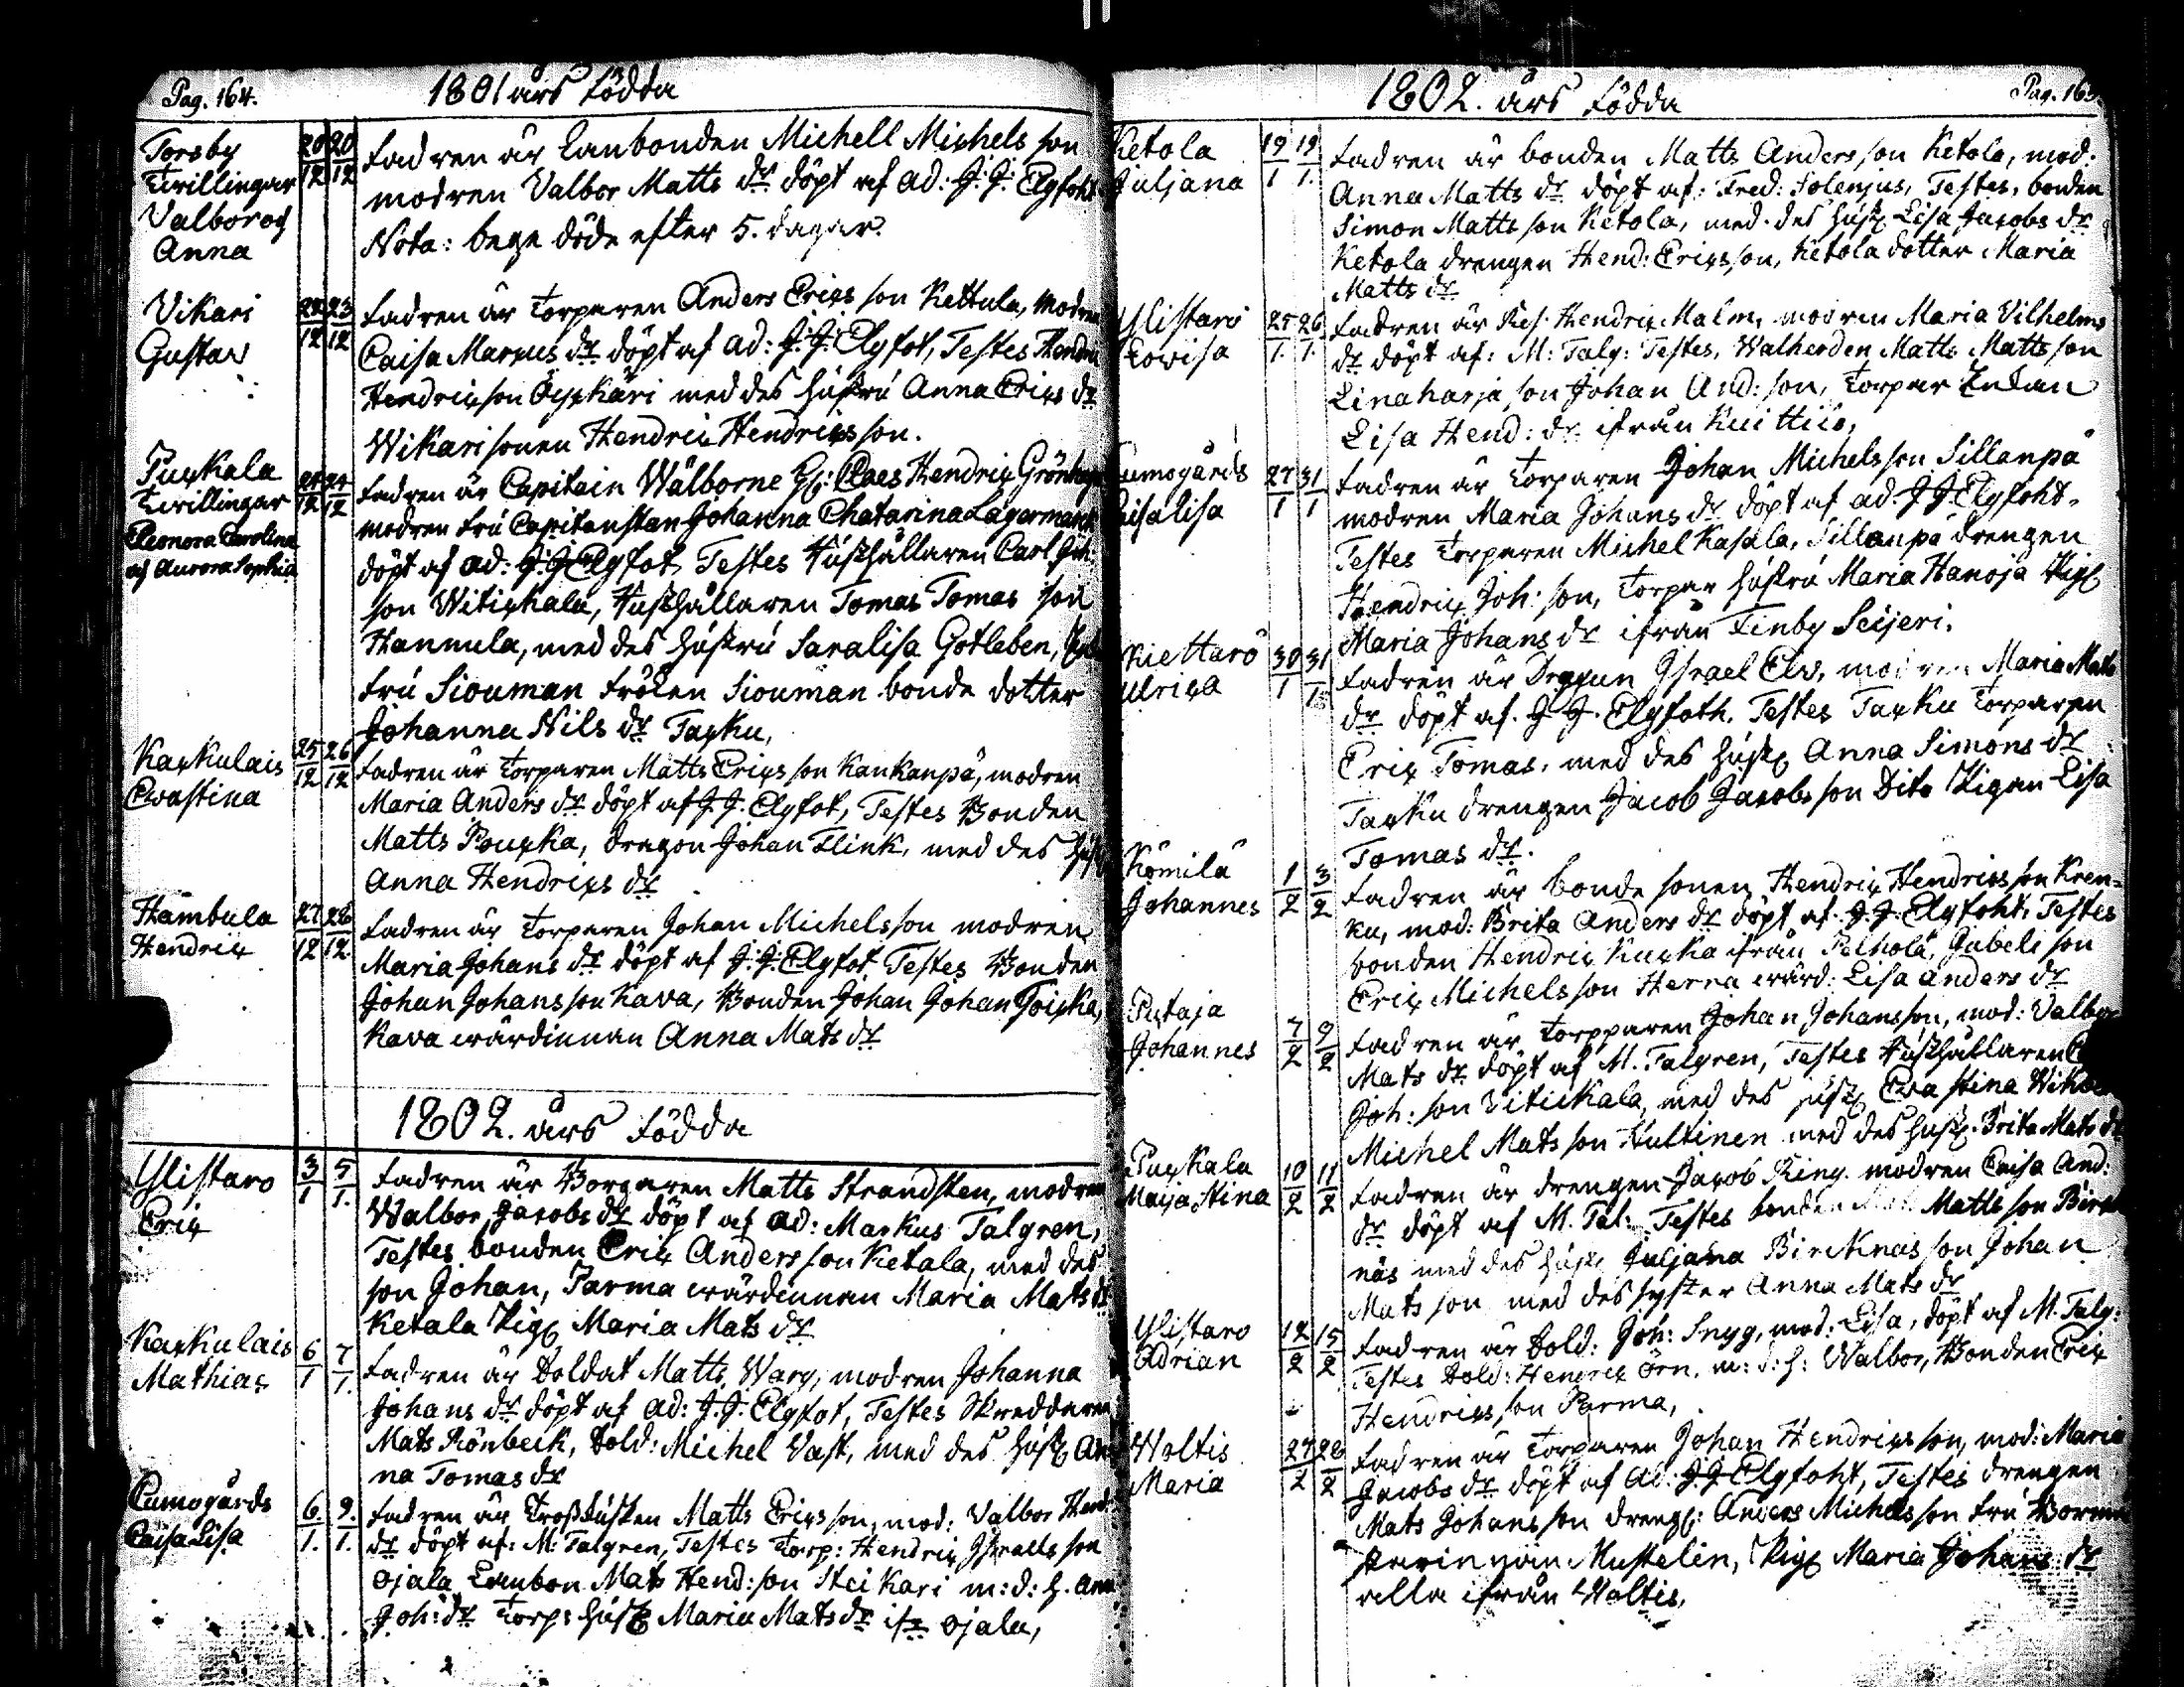 Pag. 164.
1801 års födda
Torsby
Tvillingar
Valbor och
Anna
20/12 20/12
Fadren är Lanbonden Michell Michels son
modren Valbor Matts dr döpt af ad: J: J: Elgfoht
Nota: bege döde efter 5. dagar.
Vikari
Gustav
22/12 23/12
Fadren är Torparen Anders Erics son Kettula, modren
Caisa Marcus dr döpt af ad: J: J: Elgfot, Testes
Hendricson med des hustru Anna Erics dr
Wikari sonen Hendric Hendricsson.
Puckala
Tvillingar
Eleonora Carolina
och Aurora Sophia
24/12 24/12
Fadren är Capitain Wälborne H: Claes Hendric
modren Fru Capitenskan Johanna Chatarina Lagermarck
döpt af ad: J: J Elgfot, Testes Hushållaren Carl
son Witickala, Hushållaren Tomas Tomas son
Hannula, med des hustru Saralisa Gotleben,
Fru Siouman Fröken Siouman bonde dotter
Johanna Nils dr Tacku,
Karkulais
Evastina
25/12 26/12
Fadren är Torparen Matts Erics son Kankanpä, modren
Maria Anders dr döpt af J. J. Elgfot, Testes Bonden
Matts Roucka, dragon Johan Flink, med des
Anna Hendrics dr
Hambula
Hendric
27/12 28/12
Fadren är Torparen Johan Michelsson modren
Maria Johans dr döpt af J: J: Elgfot Testes Bonden
Johan Johansson Kava, Bonden Johan Johan Toicka,
Kava wärdinnan Anna Mats dr
1802. års Födda
Ylistaro
Eric
3/1 5/1.
Fadren är Borgaren Matts Strandsten, modren
Walbor Jacobs dr döpt af ad: Markus Talgren,
Testes bonden Eric Andersson Ketala, med des
son Johan, Parma wärdinnan Maria Mats dr
Ketala Pig Maria Mats dr
Karkulais
Mathias
6/1 7/1.
Fadren är Soldat Matts Warg, modren Johanna
Johans dr döpt af ad: J. J. Elgfot, Testes Skreddaren
Mats Rönbeck, Sold: Michel Vast, med des hust An
na Tomas dr
Cumogårds
Caisa Lisa
6/1. 9/1.
Fadren är Matts Ericsson, mod: Valbor Hend:
dr döpt af: M: Talgren, Testes Torp: Hendric Israels son
Ojala Lanbon Mats Hend: son Steikari m: d: h. Anna
Joh: dr Torp: hust Maria Mats dr ifr Ojala,
1802. års Födda
Pag. 165
Ketola
Juljana
19/1 19/1.
Fadren är bonden Matts Anders son Ketola, mod:
Anna Matts dr döpt af: Fred: Polenjus, Testes, bonden
Simon Matts son Ketola, med. des hust Lisa Jacobs dr
Ketola drengen Hend: Ericsson, Ketola dotter Maria
Matts dr
Ylistaro
Lovisa
25/1. 26/1.
Fadren är Hendric Malm, modren Maria Vilhelms
dr döpt af: M: Talg: Testes, Matts Matts son
Linaharja, son Johan And: son, Torpar Enkan
Lisa Hend: dr ifrån
Cumogårds
Caisalisa
27/1 31/1
Fadren är Torparen Johan Michels son Sillanpä
modren Maria Johans dr döpt af ad. J J Elgfoht.
Testes Torparen Michel Kasala, Sillanpä drengen
Hendric Joh: son, Torpar hustru Maria Hanoja Pig
Maria Johans dr ifrån Finby Seijeri.
Kiettarö
Ulrica
30/1 31/1
Fadren är Dragun Israel Elv, modren Maria Mats
dr döpt af. J J. Elgfoth. Testes Tacku Torparen
Eric Tomas, med des hust Anna Simons dr
Tacku drengen Jacob Jacobs son Dito Pigan Lisa
Tomas dr.
Kömilä
Johannes
1/2 3/2
Fadren är bonde sonen Hendric Hendrics son Kren-
ku, mod: Brita Anders dr döpt af. J. J. Elgfoht. Testes
bonden Hendric Kucka ifrån Gabels son
Eric Michels son Herra wärd: Lisa Anders dr
Putaja
Johannes
7/2 9/2
Fadren är Torpparen Johan Johansson, mod: Valbor
Mats dr döpt af M. Talgren, Testes Hushållaren
Joh: son Vitickala, med des hust Eva Stina
Michel Mats son Hultinen med des hust. Brita Mats dr
Puckala
Maija Stina
10/2 11/2
Fadren är drengen Jacob Ring. modren Caisa And:
dr döpt af M. Tal: Testes bonden Matts son Birck
näs med des hust Juljana Bircknäs son Johan
Mats son med des syster Anna Mats dr
Ylistaro
Adrian
12/2 15/2
Fadren är Sold: Joh: Snyg, mod: Lisa, döpt af M. Talg:
Testes Sold: Hendric Örn. m: d: h: Walbor, Bonden Eric
Hendricsson Parma,
Woltis
Maria
27/2 28/2
Fadren är Torparen Johan Hendricsson, mod: Maria
Jacobs dr döpt af ad: J: J Elgfoht, Testes drengen
Mats Johansson dreng: Anders Michelsson Fru
Mustelin, Pig Maria Johans dr
alla ifrån Woltis,